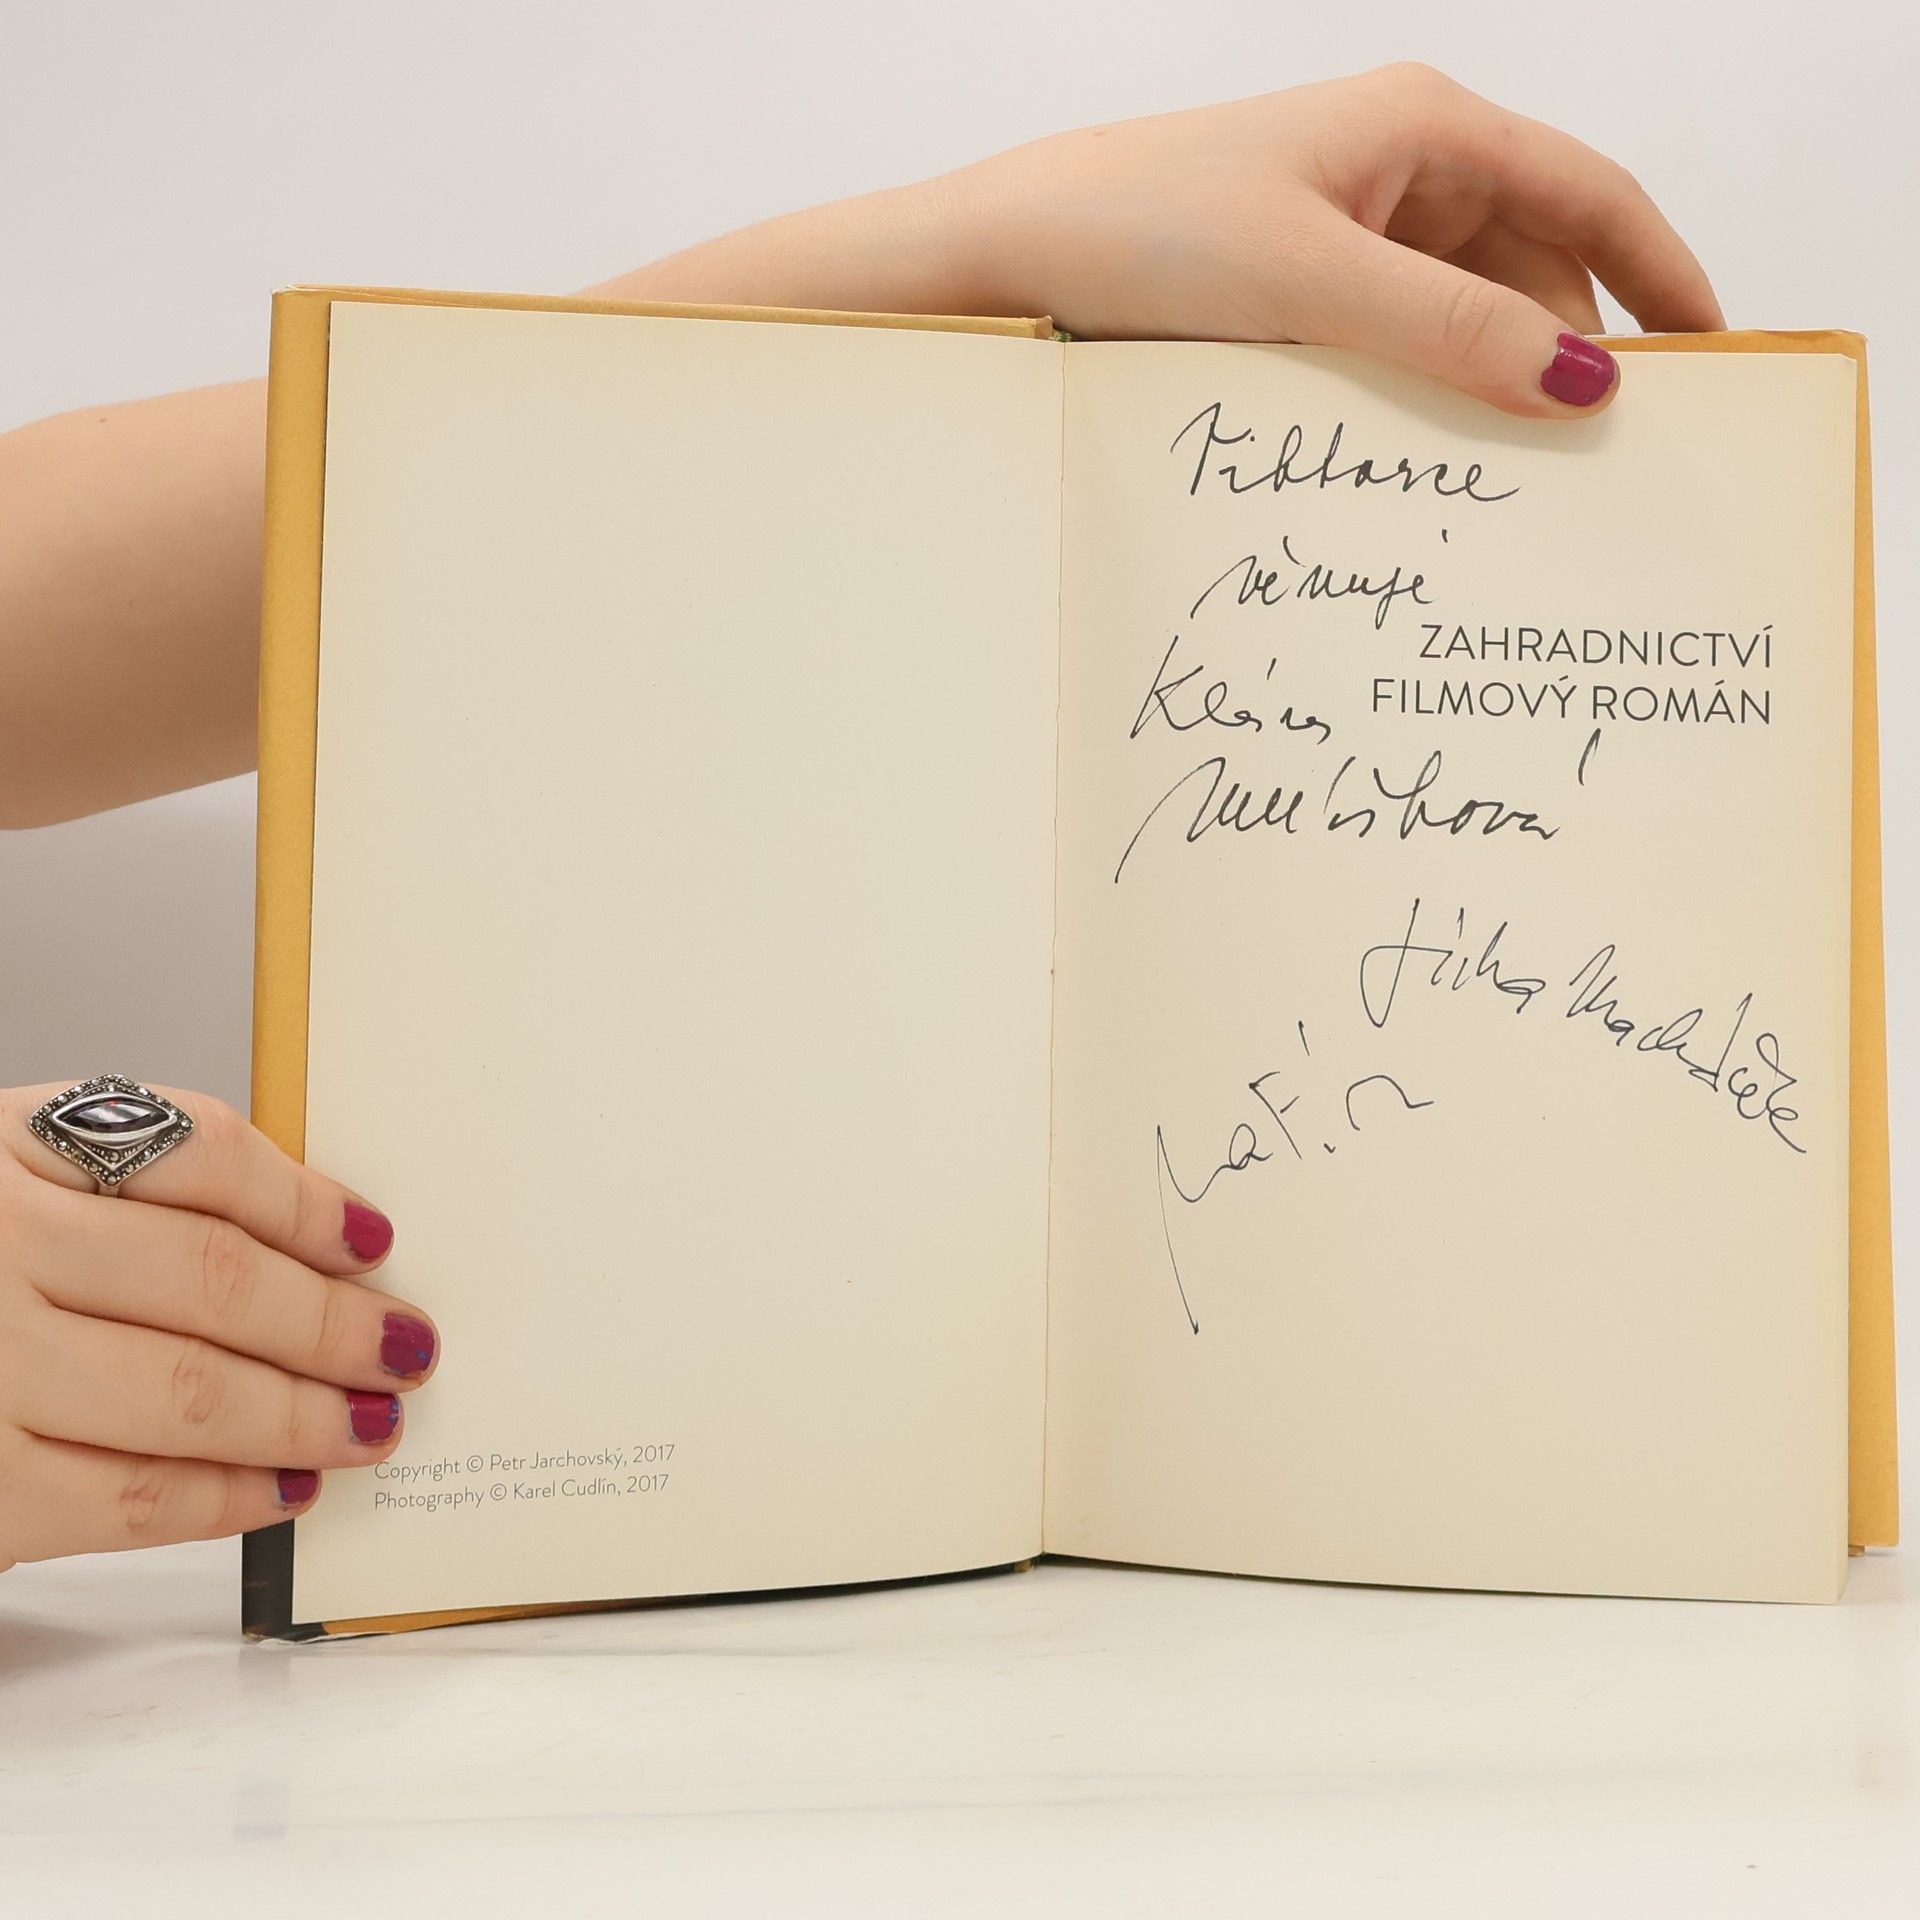 Viktorce
věnuje
ZAHRADNICTVÍ
FILMOVÝ ROMÁN
Klára
Melíšková
Jitka
Copyright © Petr Jarchovský, 2017
Photography © Karel Cudlín, 2017